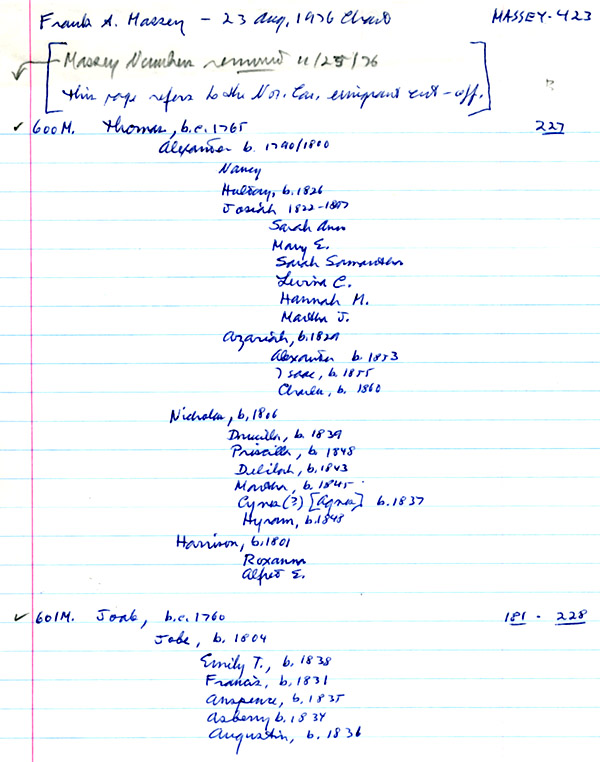 Frank A. Massey - 23 Aug, 1976 Chart MASSEY-423
Massey Numbers removed 11/25/76
This page refers to the Nor. Car. emigrant cut-off.
✓ 600 M. Thomas, b.c. 1765 227
Alexander b. 1790/1800
Nancy
b. 1826
Josiah 1822-1897
Sarah Ann
Mary E.
Sarah Samantha
Levina C.
Hannah M.
Martha J.
Azariah, b. 1829
Alexander b. 1853
Isaac, b. 1855
Charles, b. 1860
Nicholas, b. 1806
Drucilla, b. 1839
Priscilla, b. 1848
Delilah, b. 1843
Martha, b. 1845
Cynes (?) [Agnes] b. 1837
Hyram, b. 1848
Harrison, b. 1801
Roxanna
Alfred E.
✓ 601 M. Joab, b.c. 1760 181 - 228
Jobe, b. 1804
Emily T., b. 1838
Francis, b. 1831
b. 1835
Asberry b. 1834
Augustin, b. 1836